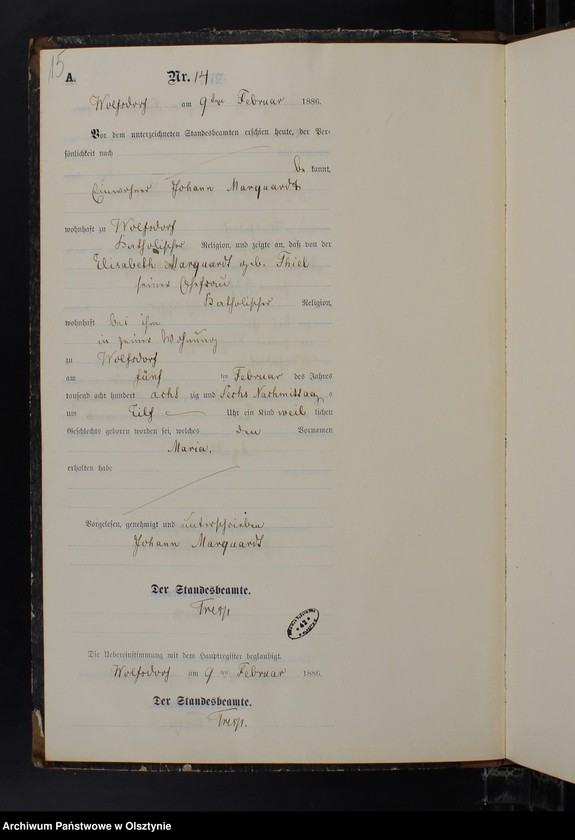 15
A.
Nr. 14
Wolfsdorf am 9ten Februar 1886.
Vor dem unterzeichneten Standesbeamten erschien heute, der Per-
sönlichkeit nach
be kannt,
Einwohner Johann Marquardt
wohnhaft zu Wolfsdorf
Katholischer Religion, und zeigte an, daß von der
Elisabeth Marquardt geb. Thiel
seiner Ehefrau
Katholischer Religion,
wohnhaft bei ihm
in seiner Wohnung
zu Wolfsdorf
am fünf ten Februar des Jahres
tausend acht hundert acht zig und Sechs Nachmittag s
um Eilf Uhr ein Kind weib lichen
Geschlechts geboren worden sei, welches den Vornamen
Maria,
erhalten habe
Vorgelesen, genehmigt und unterschrieben
Johann Marquardt
Der Standesbeamte.
Die Uebereinstimmung mit dem Hauptregister beglaubigt.
Wolfsdorf am 9 ten Februar 1886.
Der Standesbeamte.
Archiwum Państwowe w Olsztynie